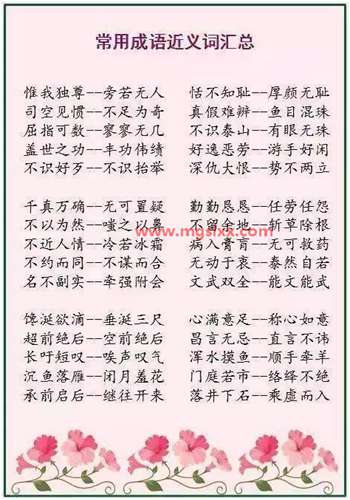 常用成语近义词汇总
惟我独尊--旁若无人 恬不知耻--厚颜无耻
司空见惯--不足为奇 真假难辨--鱼目混珠
屈指可数--寥寥无几 不识泰山--有眼无珠
盖世之功--丰功伟绩 好逸恶劳--游手好闲
不识好歹--不识抬举 深仇大恨--势不两立
千真万确--无可置疑 勤勤恳恳--任劳任怨
不以为然--嗤之以鼻 不留余地--斩草除根
www.mgslxx.com
不近人情--冷若冰霜 病入膏肓--无可救药
不约而同--不谋而合 无动于衷--泰然自若
名不副实--牵强附会 文武双全--能文能武
馋涎欲滴--垂涎三尺 心满意足--称心如意
超前绝后--空前绝后 昌言无忌--直言不讳
长吁短叹--唉声叹气 浑水摸鱼--顺手牵羊
沉鱼落雁--闭月羞花 门庭若市--络绎不绝
承前启后--继往开来 落井下石--乘虚而入